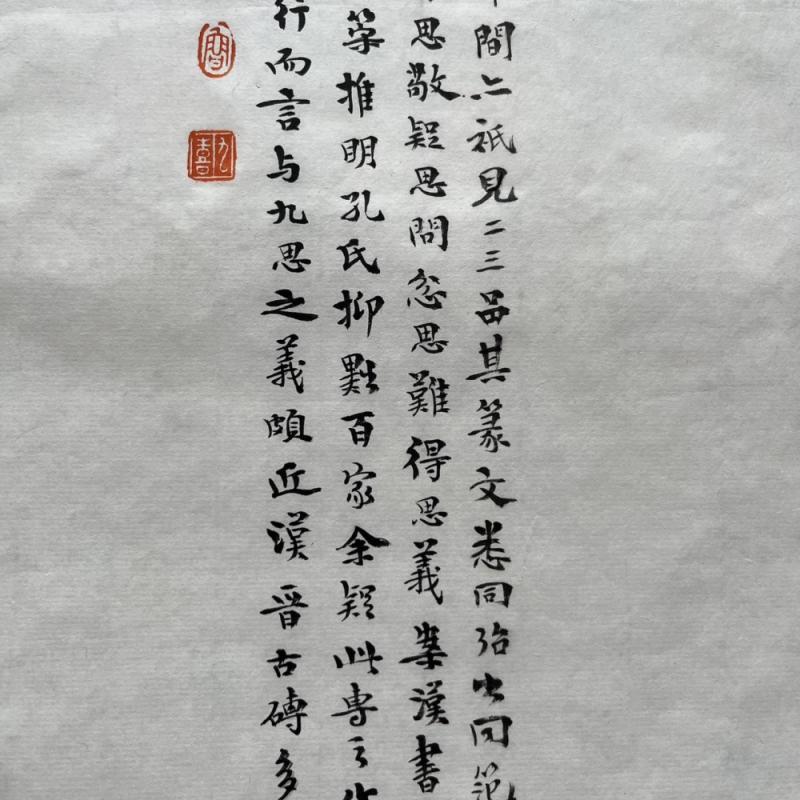 間亦祇見二三品其篆文悉同殆出同範
思敬疑思問忿思難得思義案漢書
策推明孔氏抑黜百家余疑此專之作
行而言与九思之義頗近漢晉古磚多